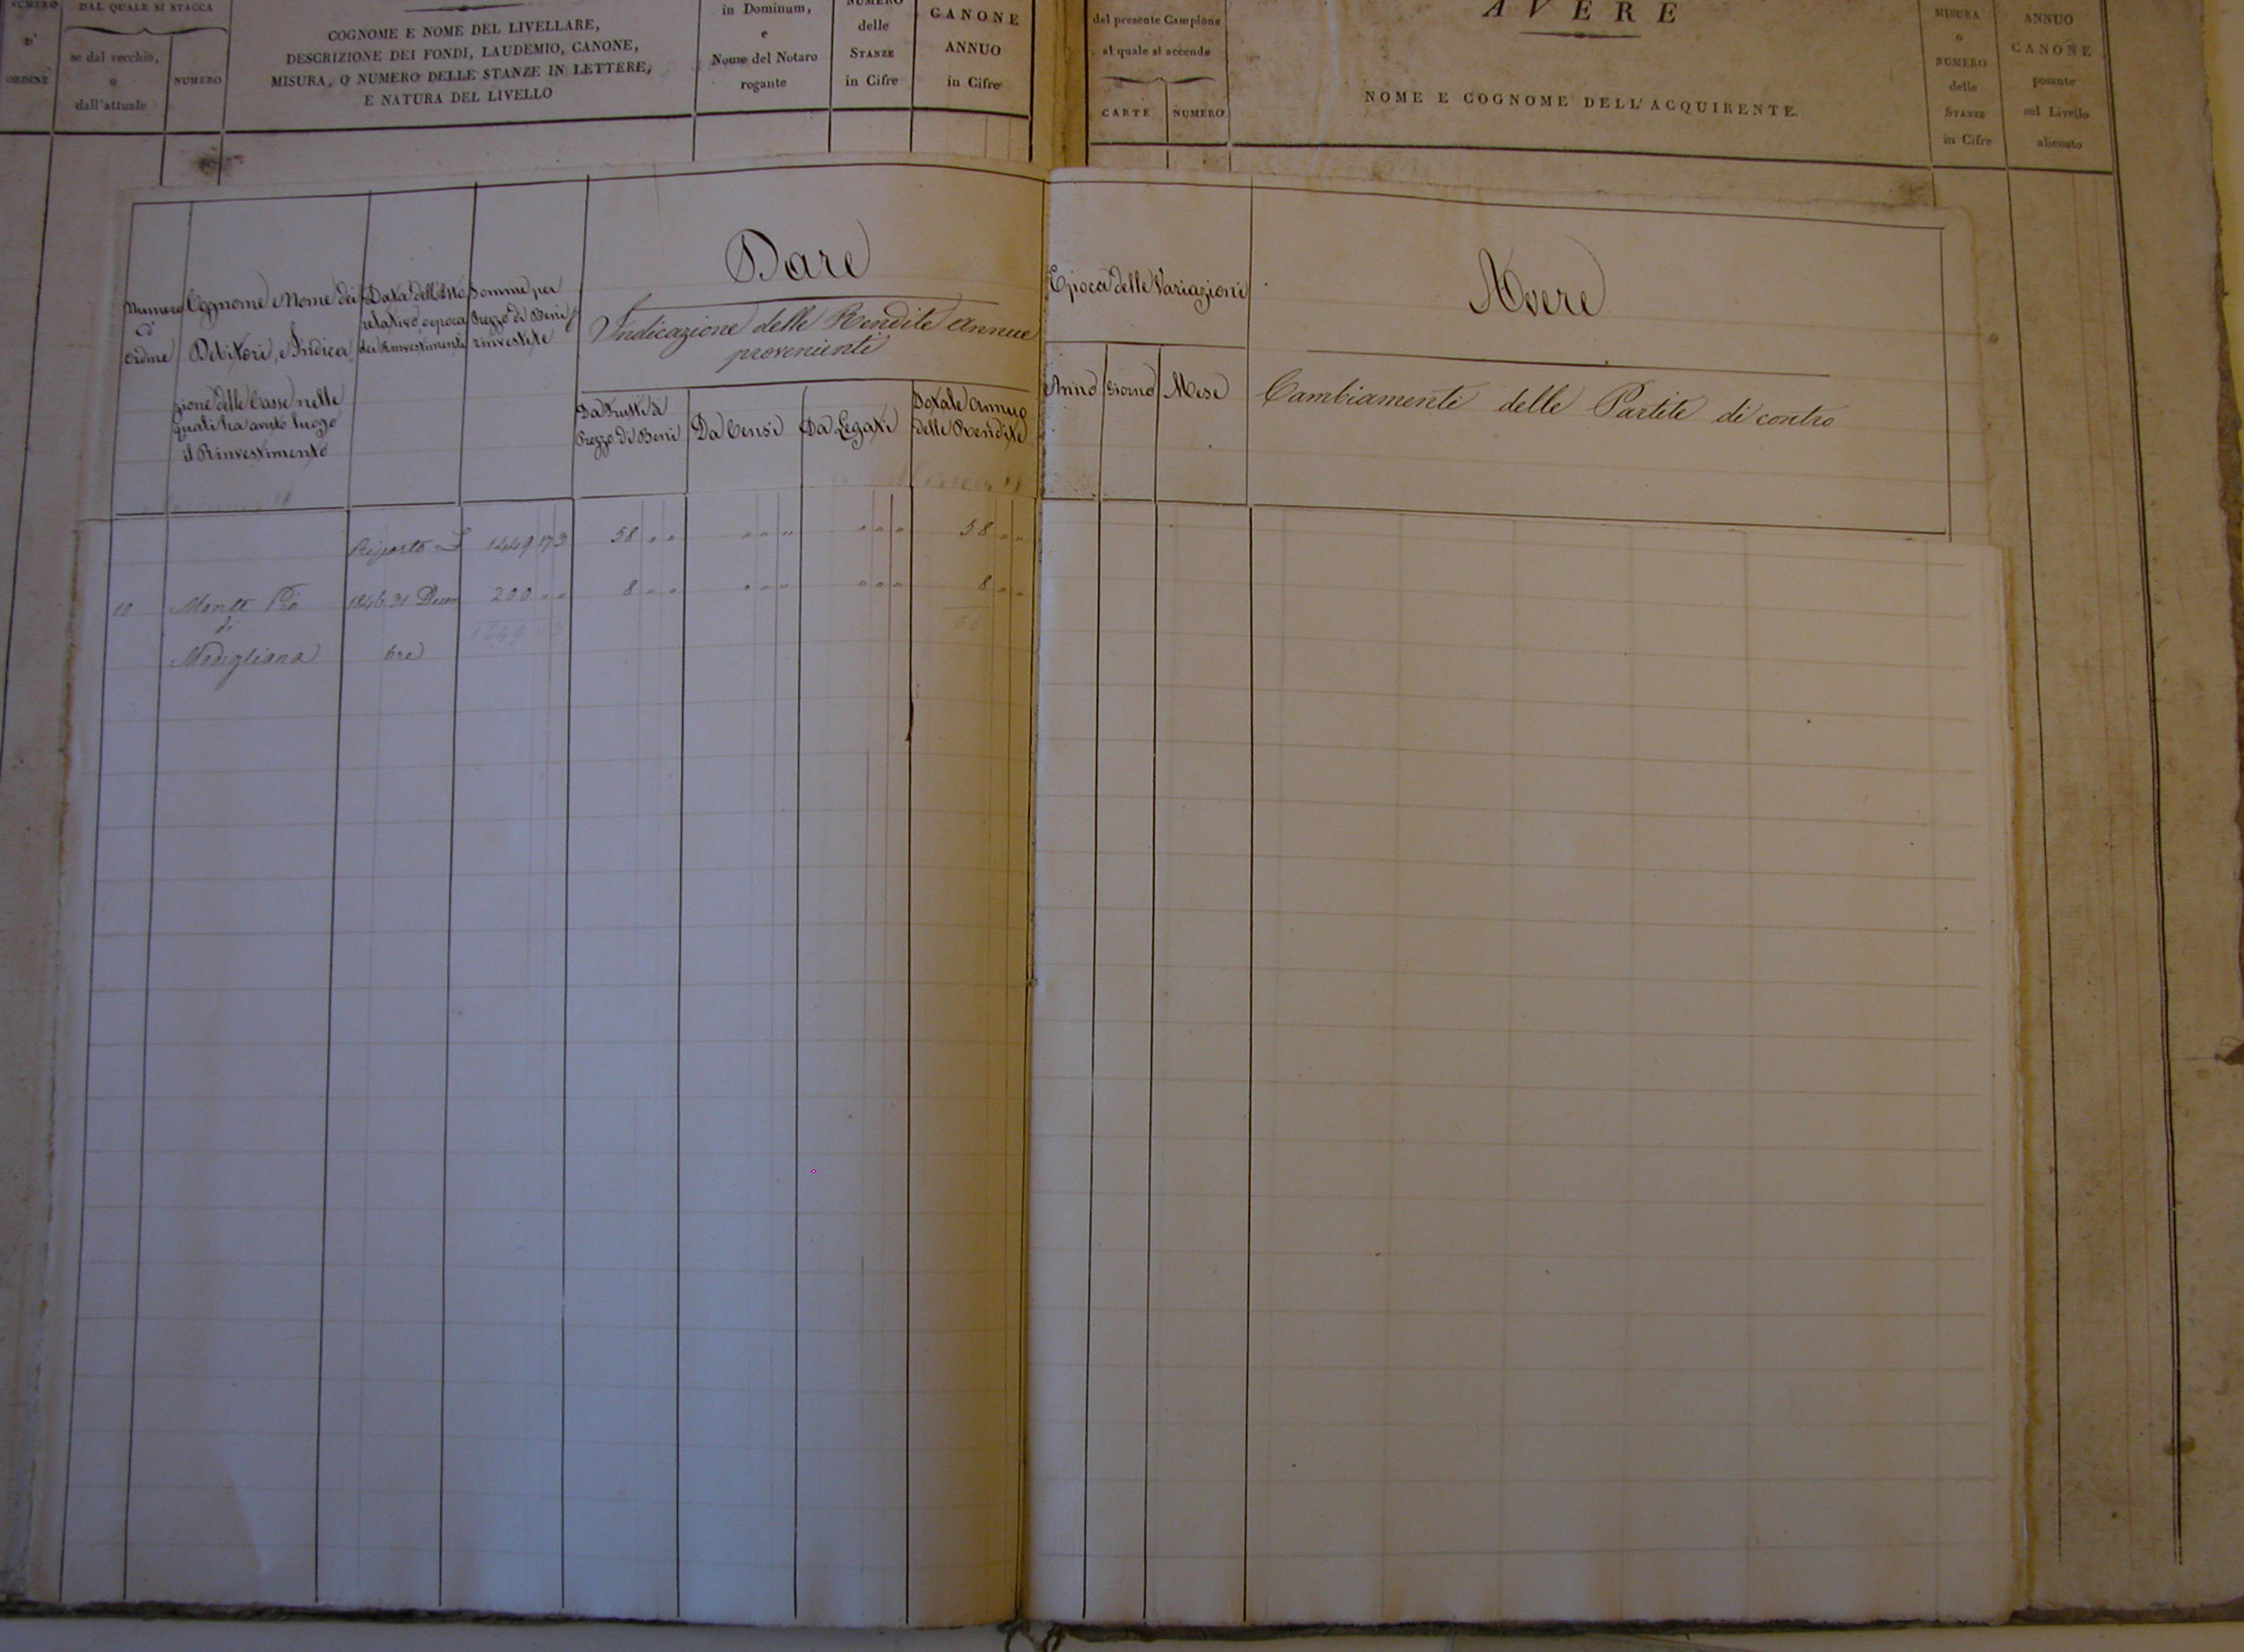 NUMERO
D'
ORDINE
DAL QUALE SI STACCA
se dal vecchio,
o
dall'attuale
NUMERO
COGNOME E NOME DEL LIVELLARE,
DESCRIZIONE DEI FONDI, LAUDEMIO, CANONE,
MISURA, O NUMERO DELLE STANZE IN LETTERE,
E NATURA DEL LIVELLO
in Dominum,
e
Nome del Notaro
rogante
NUMERO
delle
STANZE
in Cifre
CANONE
ANNUO
in Cifre
del presente Campione
al quale si accende
CARTE
NUMERO
AVERE
NOME E COGNOME DELL'ACQUIRENTE.
MISURA
o
NUMERO
delle
STANZE
in Cifre
ANNUO
CANONE
posante
sul Livello
alienato
Numero
d'
Ordine
Cognome e Nome dei
Debitori, e Indica
zione delle Casse nelle
quali ha avuto luogo
il Rinvestimento
Data dell'Atto
relativo o epoca
dei Rinvestimenti
Somme per
Prezzo di Beni
rinvestite
Dare
Indicazione delle Rendite Annue
provenienti
Da Frutti di
Prezzo di Beni
Da Censi
Da Legati
Totale Annuo
delle Rendite
Epoca delle Variazioni
Anno
Giorno
Mese
Avere
Cambiamenti delle Partite di contro
Riporto £ 1449 17 3 58 " " " " " " " " 58 " "
10 Monte Pio 1846 31 Decem 200 " " 8 " " " " " " " " 8 " "
di 1649 17 3 66
Modigliana bre